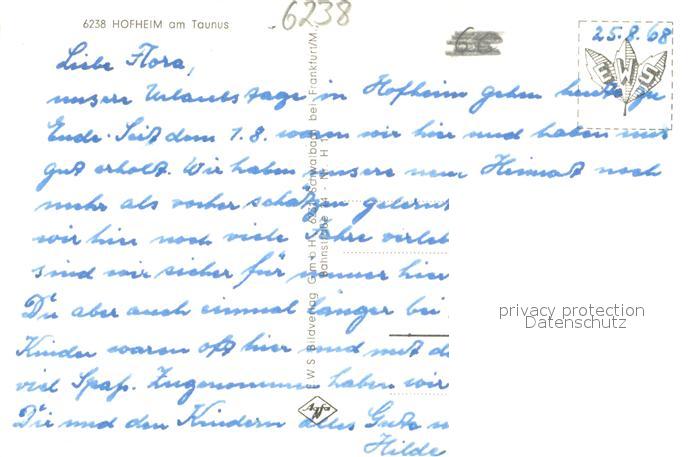 6238 HOFHEIM am Taunus
6238
66
25.8.68
EWS
Liebe Flora,
unsere Urlaubstage in Hofheim gehen heute zu
Ende. Seit dem 1.8. waren wir hier und haben uns
gut erholt. Wir haben unsere neue Heimat noch
mehr als vorher schätzen gelernt
wir hier noch viele Jahre verleb
sind wir sicher für immer hier
Dir aber auch einmal länger bei
Kinder waren oft hier und mit d
viel Spaß. Zugenommen haben wir
Dir und den Kindern alles Gute
Hilde
EWS Bildverlag GmbH 6232 Schwalbach bei Frankfurt/M.
Bahnstraße
Agfa
privacy protection
Datenschutz